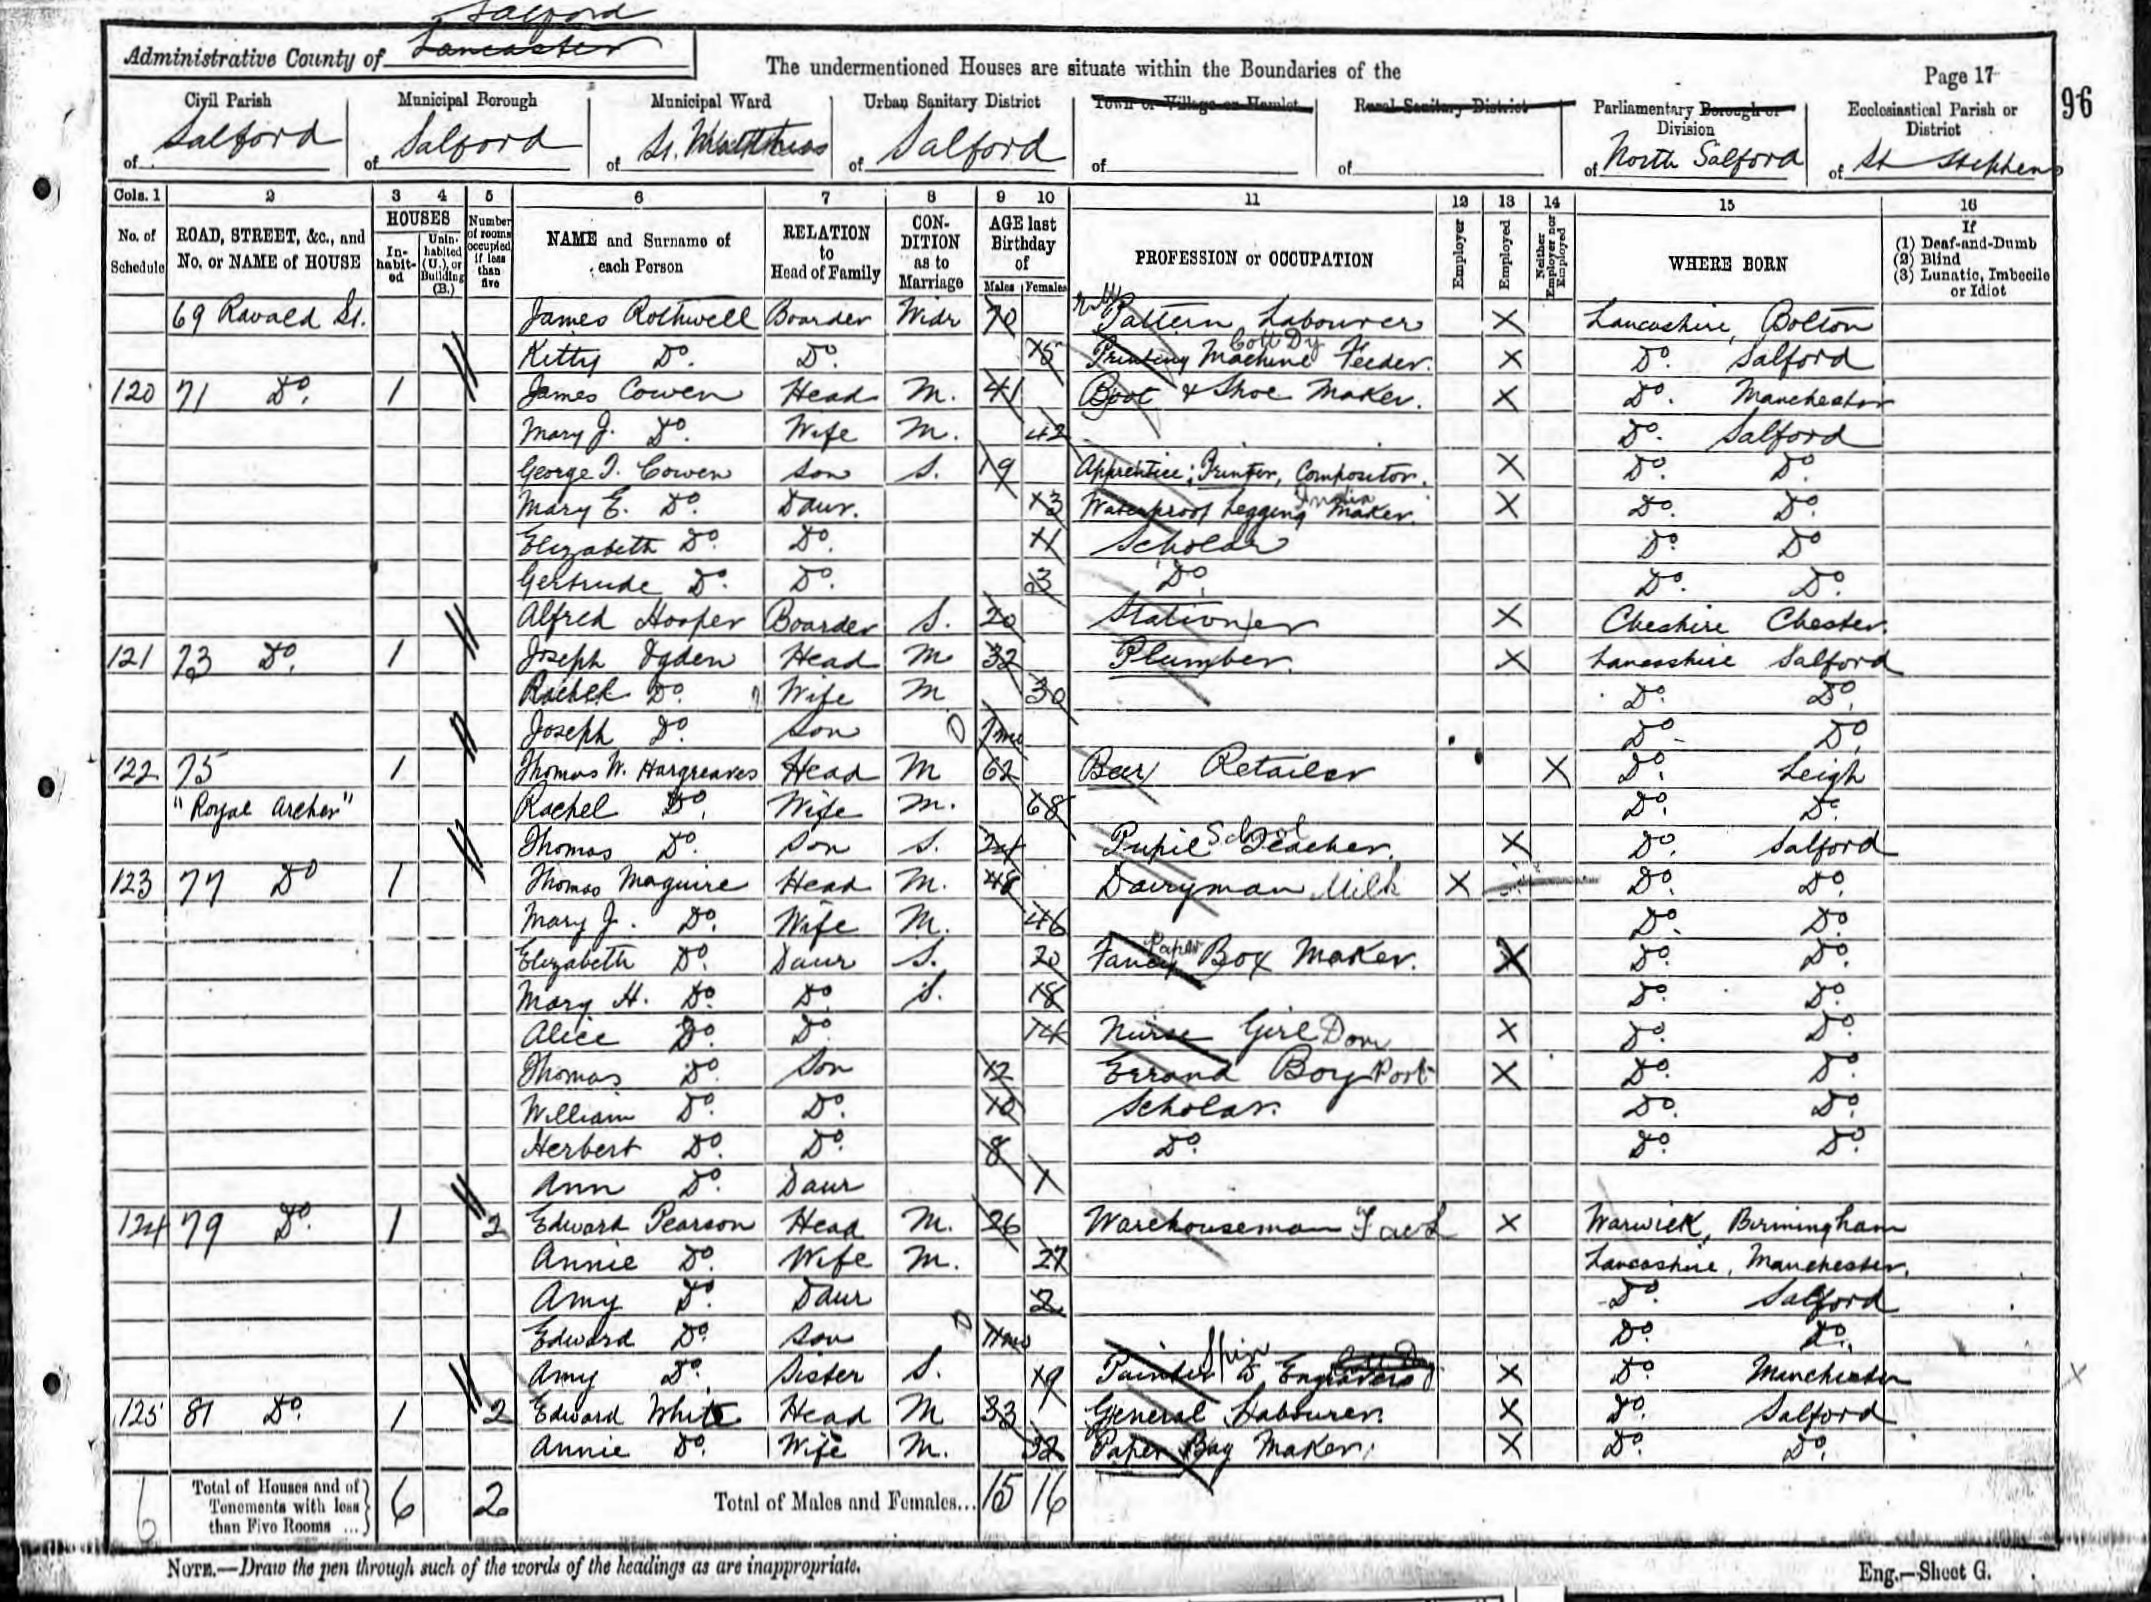 Salford
Administrative County of Lancaster
The undermentioned Houses are situate within the Boundaries of the
Page 17
96
Civil Parish of Salford
Municipal Borough of Salford
Municipal Ward of St. Matthias
Urban Sanitary District of Salford
Town or Village or Hamlet of
Rural Sanitary District of
Parliamentary Borough or Division of North Salford
Ecclesiastical Parish or District of St Stephens
Cols. 1 2 3 4 5 6 7 8 9 10 11 12 13 14 15 16
No. of Schedule
ROAD, STREET, &c., and No. or NAME of HOUSE
HOUSES
In-habit-ed
Unin-habited (U.), or Building (B.)
Number of rooms occupied if less than five
NAME and Surname of each Person
RELATION to Head of Family
CON-DITION as to Marriage
AGE last Birthday of
Males Females
PROFESSION or OCCUPATION
Employer
Employed
Neither Employer nor Employed
WHERE BORN
If (1) Deaf-and-Dumb (2) Blind (3) Lunatic, Imbecile or Idiot
69 Ravald St. James Rothwell Boarder Widr 70 Pattern Labourer X Lancashire, Bolton
Kitty Do. Do. 15 Printing Machine Feeder. Cott Dy X Do. Salford
120 71 Do. 1 James Cowen Head M. 41 Boot & Shoe Maker. X Do. Manchester
Mary J. Do. Wife M. 42 Do. Salford
George T. Cowen Son S. 19 Apprentice; Printer, Compositor. X Do. Do.
Mary E. Do. Daur. 13 Waterproof Legging Maker. India X Do. Do.
Elizabeth Do. Do. 11 Scholar Do. Do
Gertrude Do. Do. 3 Do. Do. Do.
Alfred Hooper Boarder S. 20 Stationer X Cheshire Chester.
121 73 Do. 1 Joseph Ogden Head M 32 Plumber. X Lancashire Salford
Rachel Do. Wife M 30 Do. Do.
Joseph Do. Son 7mo Do Do.
122 75 1 Thomas W. Hargreaves Head M 62 Beer Retailer X Do. Leigh
"Royal Archer" Rachel Do. Wife M. 68 Do. Do.
Thomas Do. Son S. 24 Pupil Teacher. School X Do. Salford
123 77 Do 1 Thomas Maguire Head M. 48 Dairyman Milk X Do. Do.
Mary J. Do. Wife M. 46 Do. Do.
Elizabeth Do. Daur S. 20 Fancy Paper Box Maker. X Do. Do.
Mary H. Do. Do. S. 18 Do. Do.
Alice Do. Do. 14 Nurse Girl Dom X Do. Do.
Thomas Do. Son 12 Errand Boy Port X Do. Do.
William Do. Do. 10 Scholar. Do. Do.
Herbert Do. Do. 8 Do. Do. Do.
Ann Do. Daur 1
124 79 Do. 1 2 Edward Pearson Head M. 26 Warehouseman X Warwick, Birmingham
Annie Do. Wife M. 27 Lancashire, Manchester.
Amy Do. Daur 2 Do. Salford
Edward Do. Son 11mo Do. Do.
Amy Do. Sister S. 19 Painter to Engravers X Do. Manchester
125 81 Do. 1 2 Edward White Head M 33 General Labourer. X Do. Salford
Annie Do. Wife M. 32 Paper Bag Maker. X Do. Do.
6 Total of Houses and of Tenements with less than Five Rooms ... 6 2 Total of Males and Females... 15 16
NOTE.—Draw the pen through such of the words of the headings as are inappropriate.
Eng.—Sheet G.